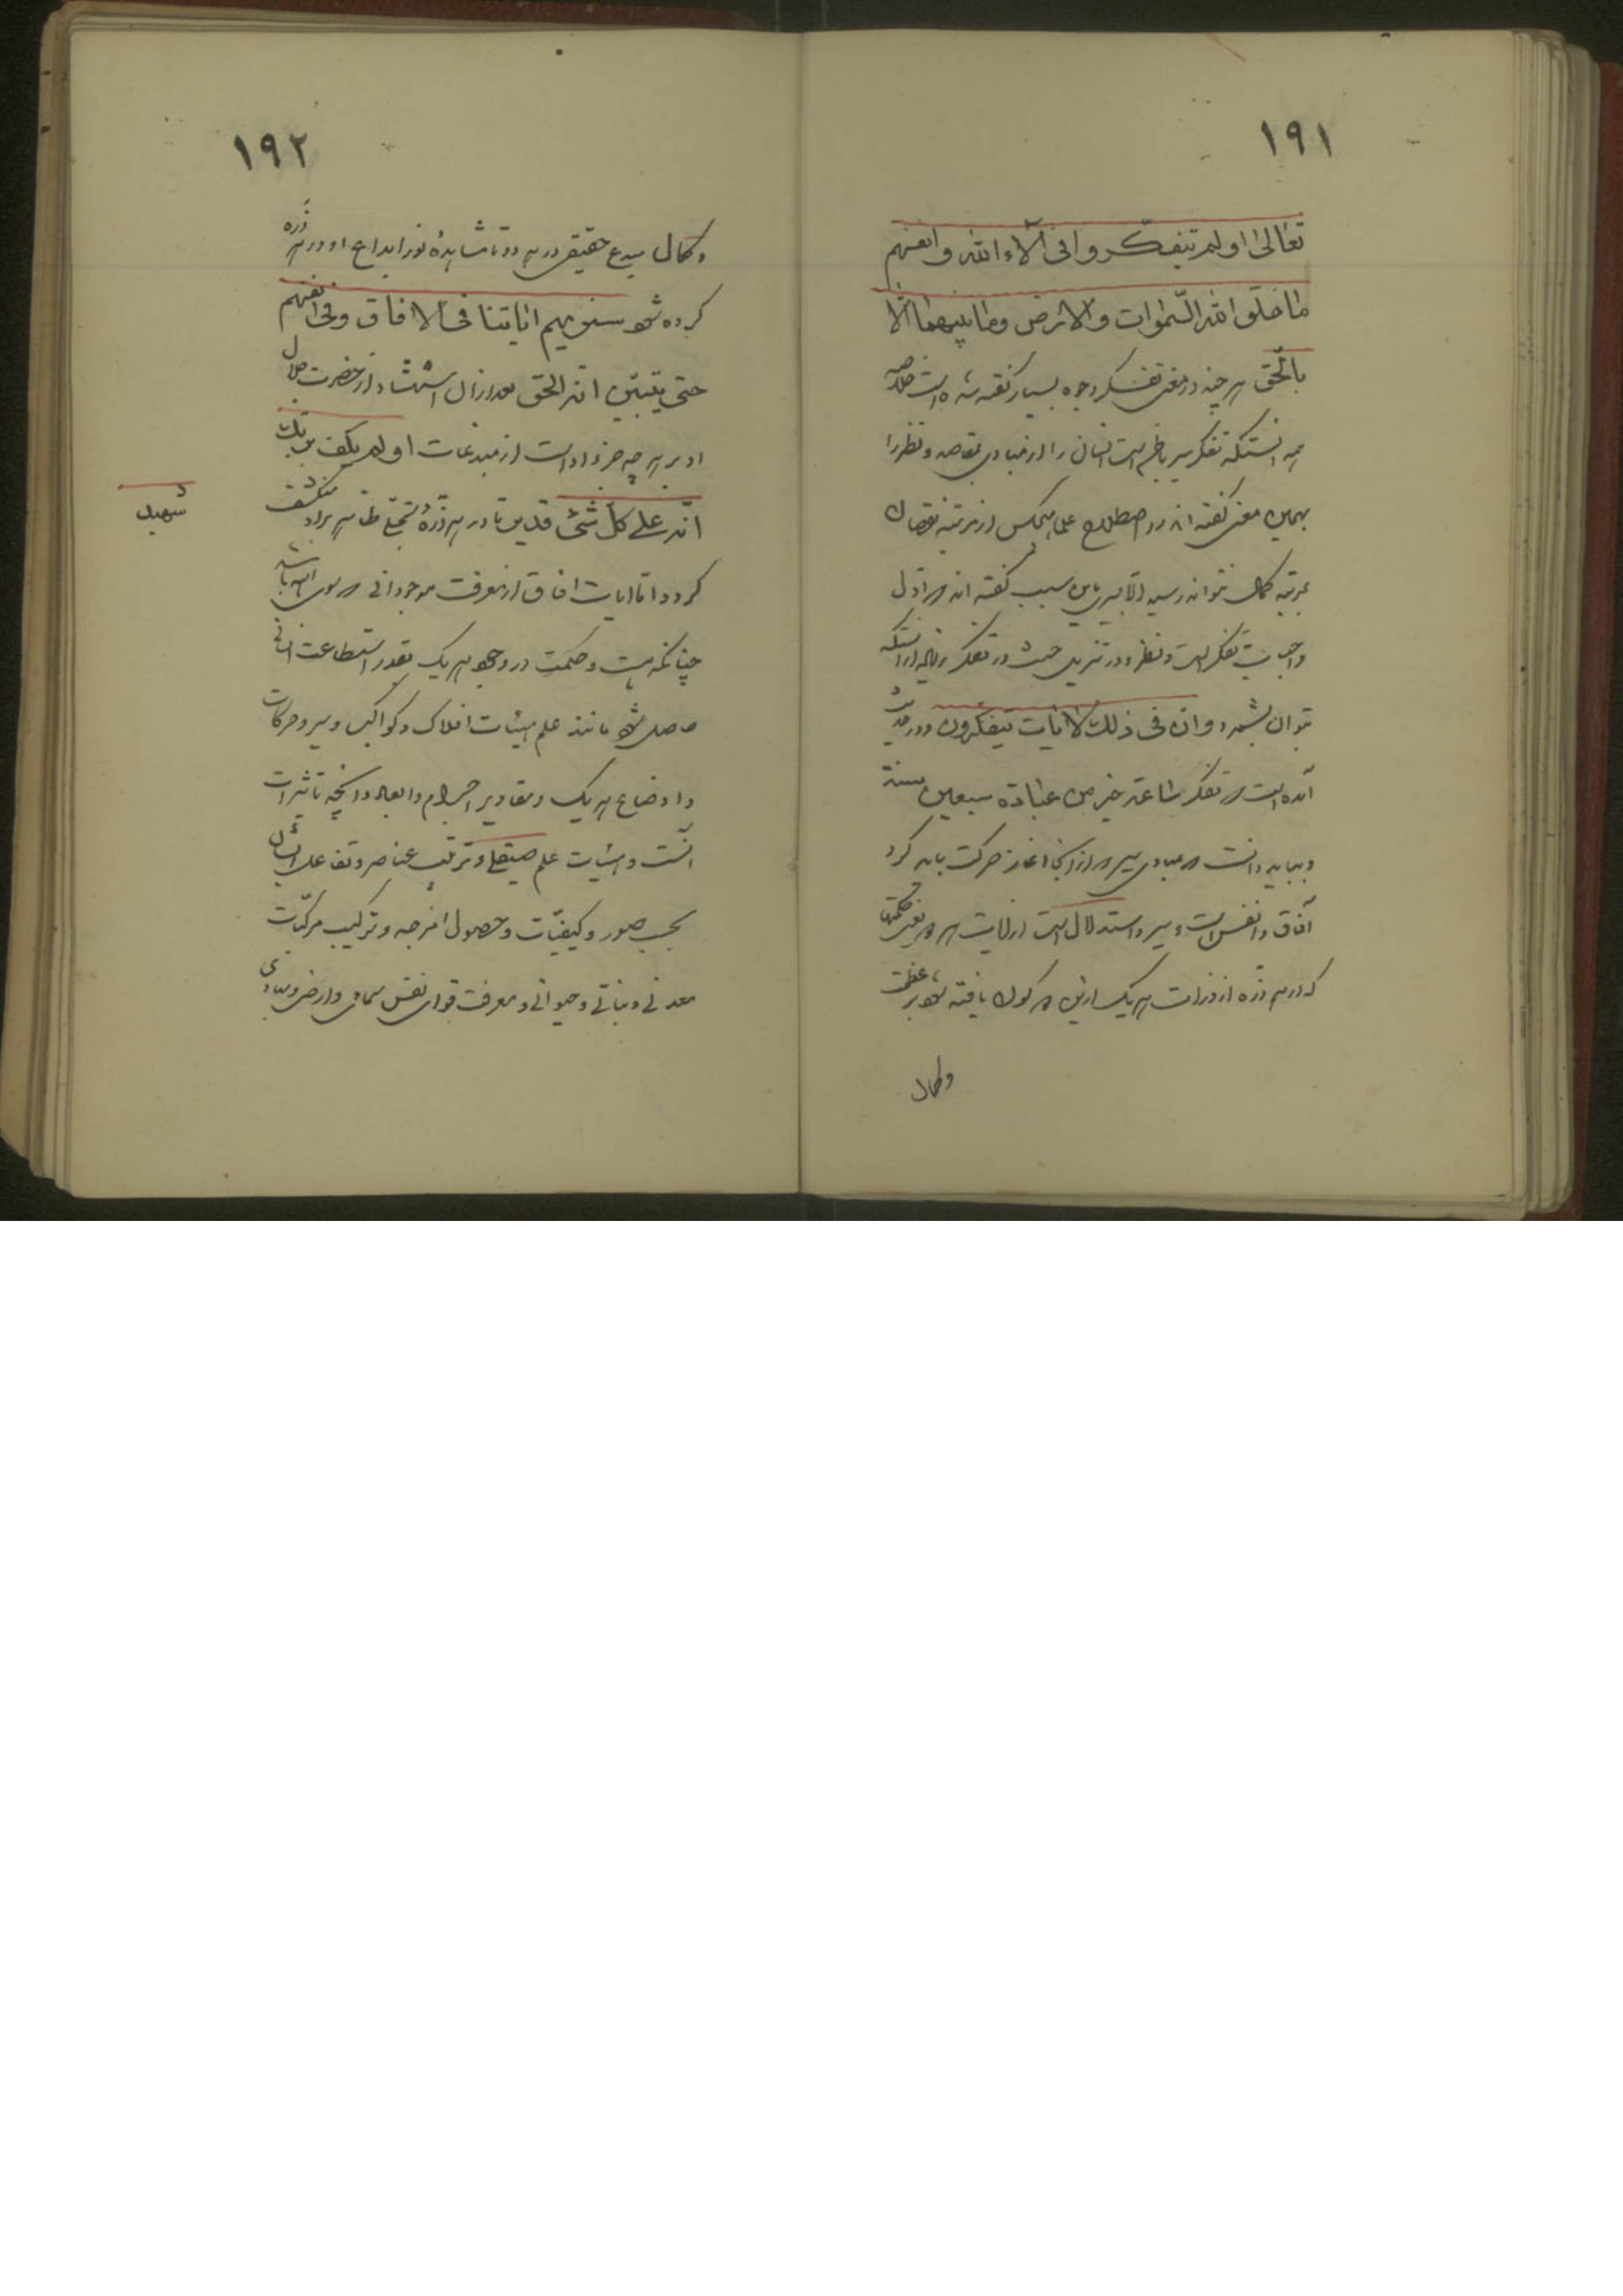 ١٩١
تعالی اولم یتفکّروا فی آلاء الله و انفسهم
ما خلق الله السّموات و الارض و ما بینهما الّا
بالحّق هر چند در معنی تفکر وجوه بسیار گفته شده است خلاصه
همه آنستکه تفکر سیر باطن است انسان را از مبادی بمقاصد و نظر را
بهمین معنی گفته اند در اصطلاح علما هیچکس از مرتبه نقصان
بمرتبه کمال نتواند رسید الّا بسیری باین سبب گفته اند که اوّل
واجبات تفکر است و نظر و در تنزیل حث در تفکر زیاده از آنستکه
توان بشمرد و انّ فی ذلک لایات یتفکرون و در حدیث
آمده است که تفکر ساعة خیر من عبادة سبعین سنة
و بباید دانست که مبادی سیر که از آنجا آغاز حرکت باید کرد
آفاق و انفس است و سیر و استدلال است از آیات هر دو یعنی حکمتها
که در هر ذره از ذرات هر یک ازین دو کون یافته شود بر عظمت
و کمال
١٩٢
و کمال مبدع حقیقی در هر دو تا مشاهدهٔ نور ابداع او در هر ذره
کرده شود سنریهم ایاتنا فی الافاق و فی انفسهم
حتی یتبیّن انّه الحق بعد از ان استشهاد از حضرت جلال
او بر هر چه جز او است از مبدعات اولم یکف بربک
انّه علی کلّ شئ قدیر تا در هر ذرّهٔ تجلّی ظاهر براو منکشف
شهید
گردد امّا ایات افاق از معرفت موجوداتی که سوی الله باشد
چنانکه هست و حکمت در وجود هر یک بقدر استطاعت انسانی
حاصل شود مانند علم هیئات افلاک و کواکب و سیر و حرکات
و اوضاع هر یک و مقادیر اجرام و ابعاد و آنچه تاثیرات
آنست و هیئات علم و ترتیب عناصر و تفاعل ایشان
بحسب صور و کیفیّات و حصول امزجه و ترکیب مرکّبات
معدنی و نباتی و حیوانی و معرفت قوای نفس سماوی و ارضی و مبادی